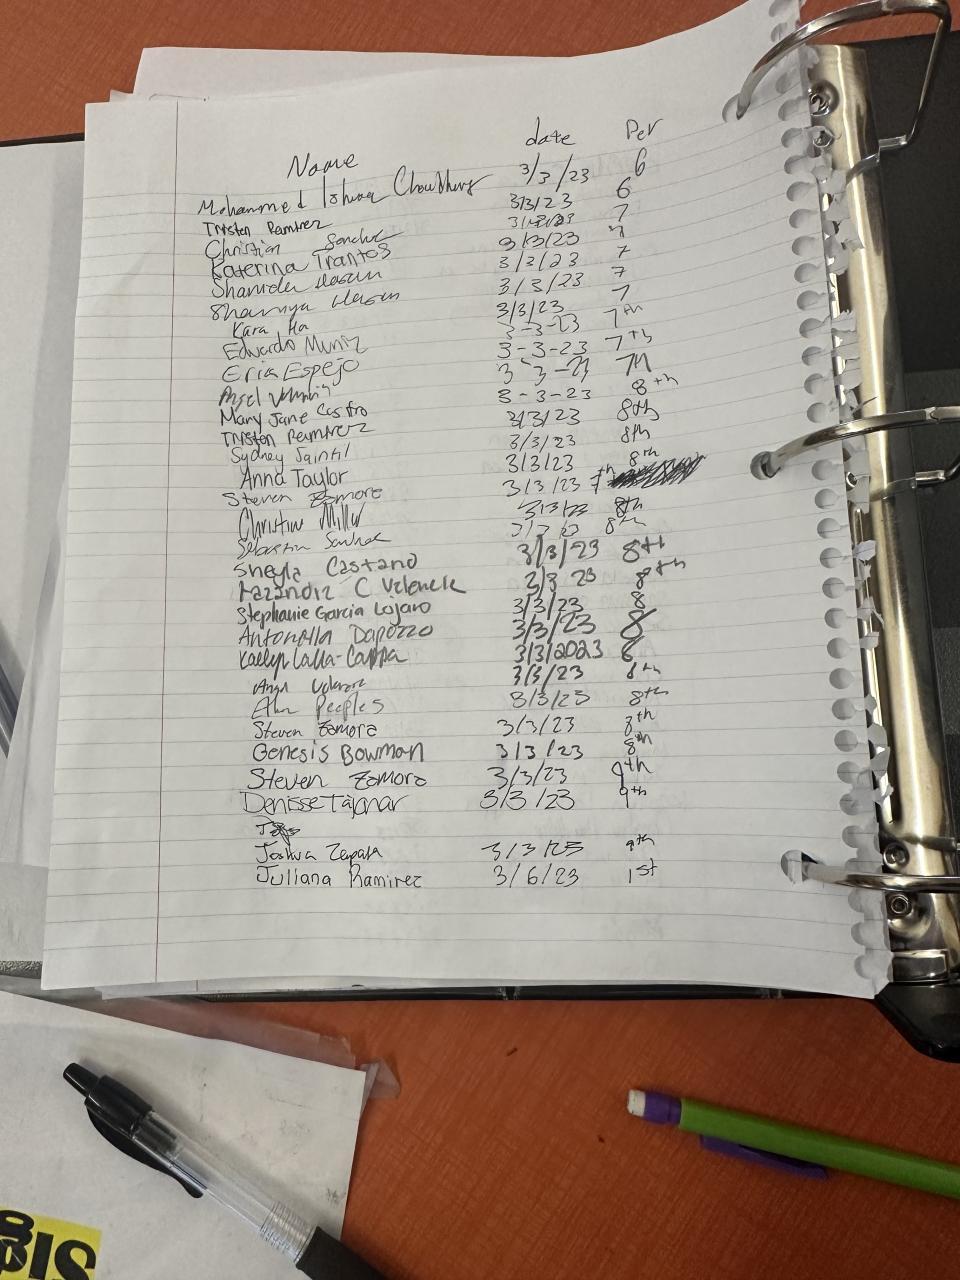 Name date Per
Mohammed Choudhury 3/3/23 6
Tristen Ramirez 3/3/23 6
Christian 7
Katerina Trantos 3/3/23 7
Shamida Hasan 3/3/23 7
Shamiya Hasan 3/3/23 7
Kara Ha 3/3/23 7
Edwardo Muniz 3-3-23 7th
Erica Espejo 3-3-23 7th
Angel 3-3-23
Mary Jane Castro 3-3-23 8th
Tristen Ramirez 3/3/23 8th
Sydney Saintil 3/3/23 8th
Anna Taylor 3/3/23 8th
Steven Zamora 3/3/23 7th
Christine Miller 3/3/23 8th
Sebastian 8th
Sheyla Castano 3/3/23 8th
C 2/3 23 8th
Stephanie Garcia Lojano 3/3/23 8
Antonella Dapozzo 3/3/23 8
Kaelyn Lalla- 3/3/2023
Angel 3/3/23 8th
Peeples 3/3/23 8th
Steven Zamora 3/3/23 8th
Genesis Bowman 3/3/23 8th
Steven Zamora 3/3/23 9th
Denisse Tajonar 3/3/23 9th
Joshua Zapata 3/3/23 9th
Juliana Ramirez 3/6/23 1st